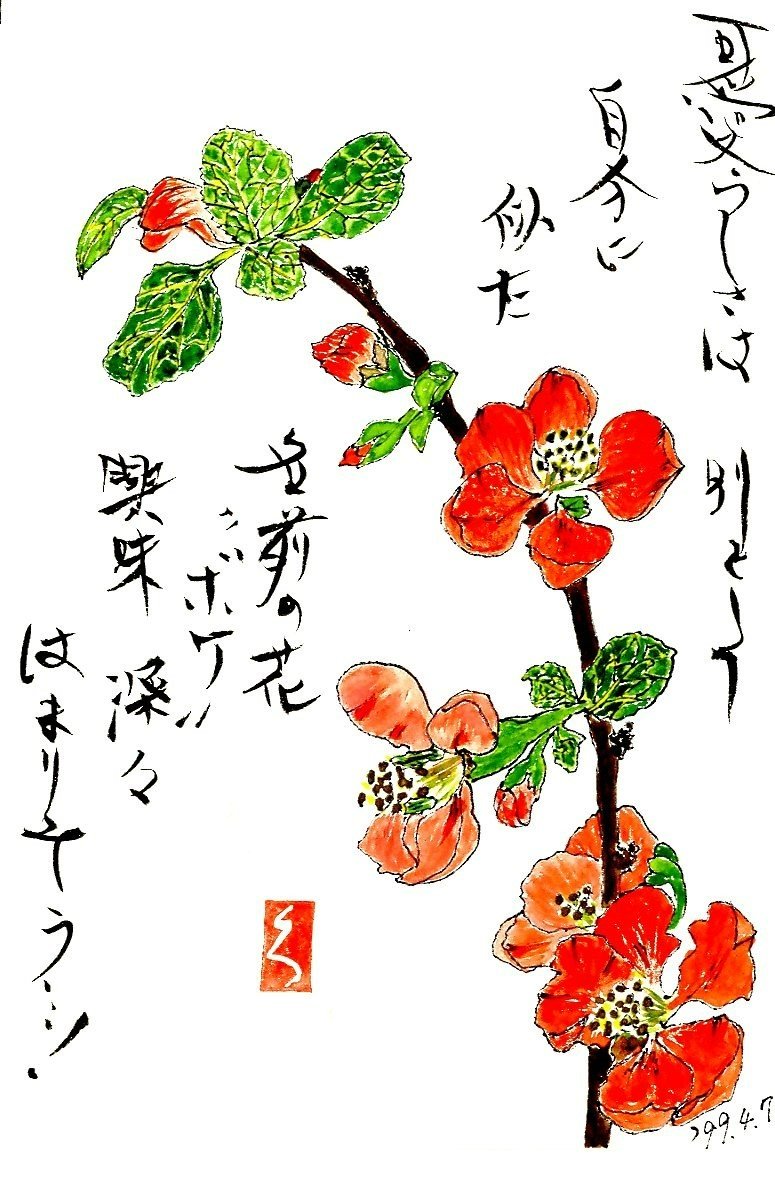 可愛らしさは 別として
自分に
似た
名前の花
"ボケ"
興味 深々
はまりそう
'99.4.7